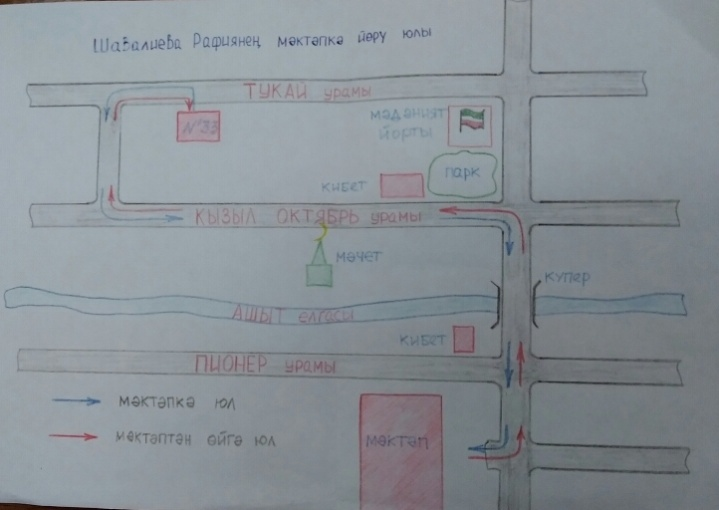 Шавалиева Рафиянең мәктәпкә йөрү юлы
ТУКАЙ урамы
№33
мәдәният
йорты
парк
кибет
КЫЗЫЛ ОКТЯБРЬ урамы
мәчет
күпер
АШЫТ елгасы
кибет
ПИОНЕР урамы
мәктәпкә юл
мәктәптән өйгә юл
мәктәп